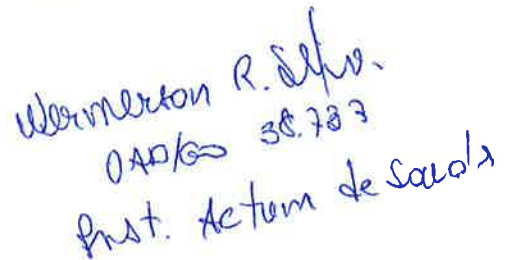 Wermerson R. Silva.
OAB/GO 38.737
Inst. Actum de Saúde